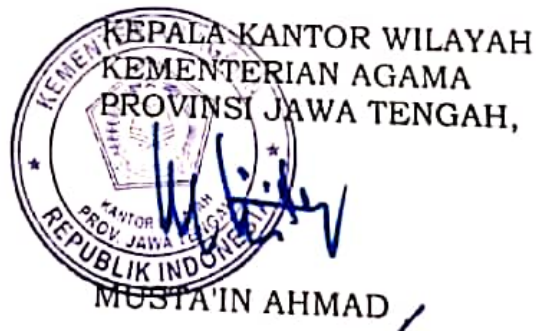 KEPALA KANTOR WILAYAH
KEMENTERIAN AGAMA
PROVINSI JAWA TENGAH,
KEMENTERIAN AGAMA
KANTOR WILAYAH
PROV. JAWA TENGAH
REPUBLIK INDONESIA
MUSTA'IN AHMAD